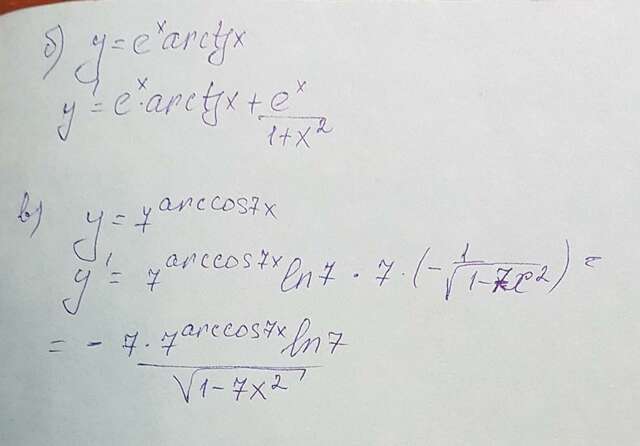 б) y = e^x arctg x
y' = e^x · arctg x + e^x / (1+x^2)
в) y = 7^(arccos 7x)
y' = 7^(arccos 7x) ln 7 · 7 · (- 1 / √(1-7x^2)) =
= - 7 · 7^(arccos 7x) ln 7 / √(1-7x^2)